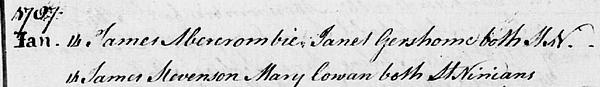 1797.
Jan. 14 James Abercrombie, Janet Gershome both St. N.
14 James Stevenson Mary Cowan both St Ninians